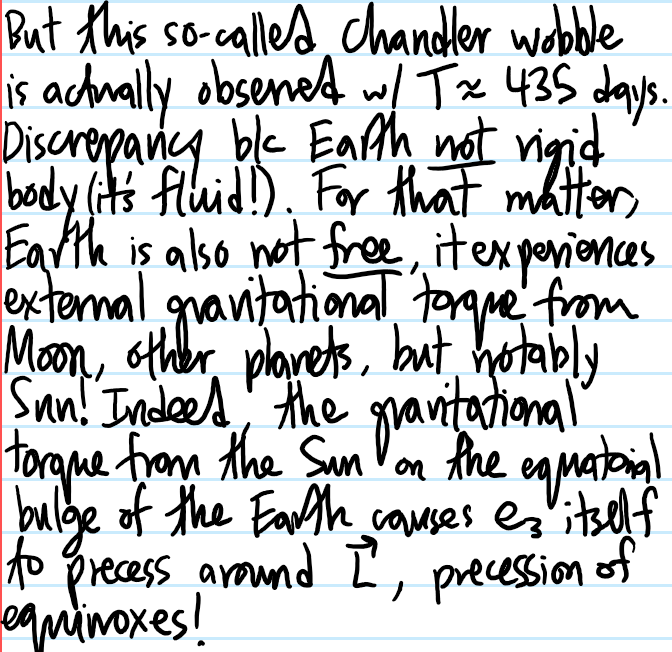 But this so-called Chandler wobble
is actually observed w/ T ≈ 435 days.
Discrepancy b/c Earth not rigid
body (it's fluid!). For that matter,
Earth is also not free, it experiences
external gravitational torque from
Moon, other planets, but notably
Sun! Indeed, the gravitational
torque from the Sun on the equatorial
bulge of the Earth causes e₃ itself
to precess around L⃗, precession of
equinoxes!